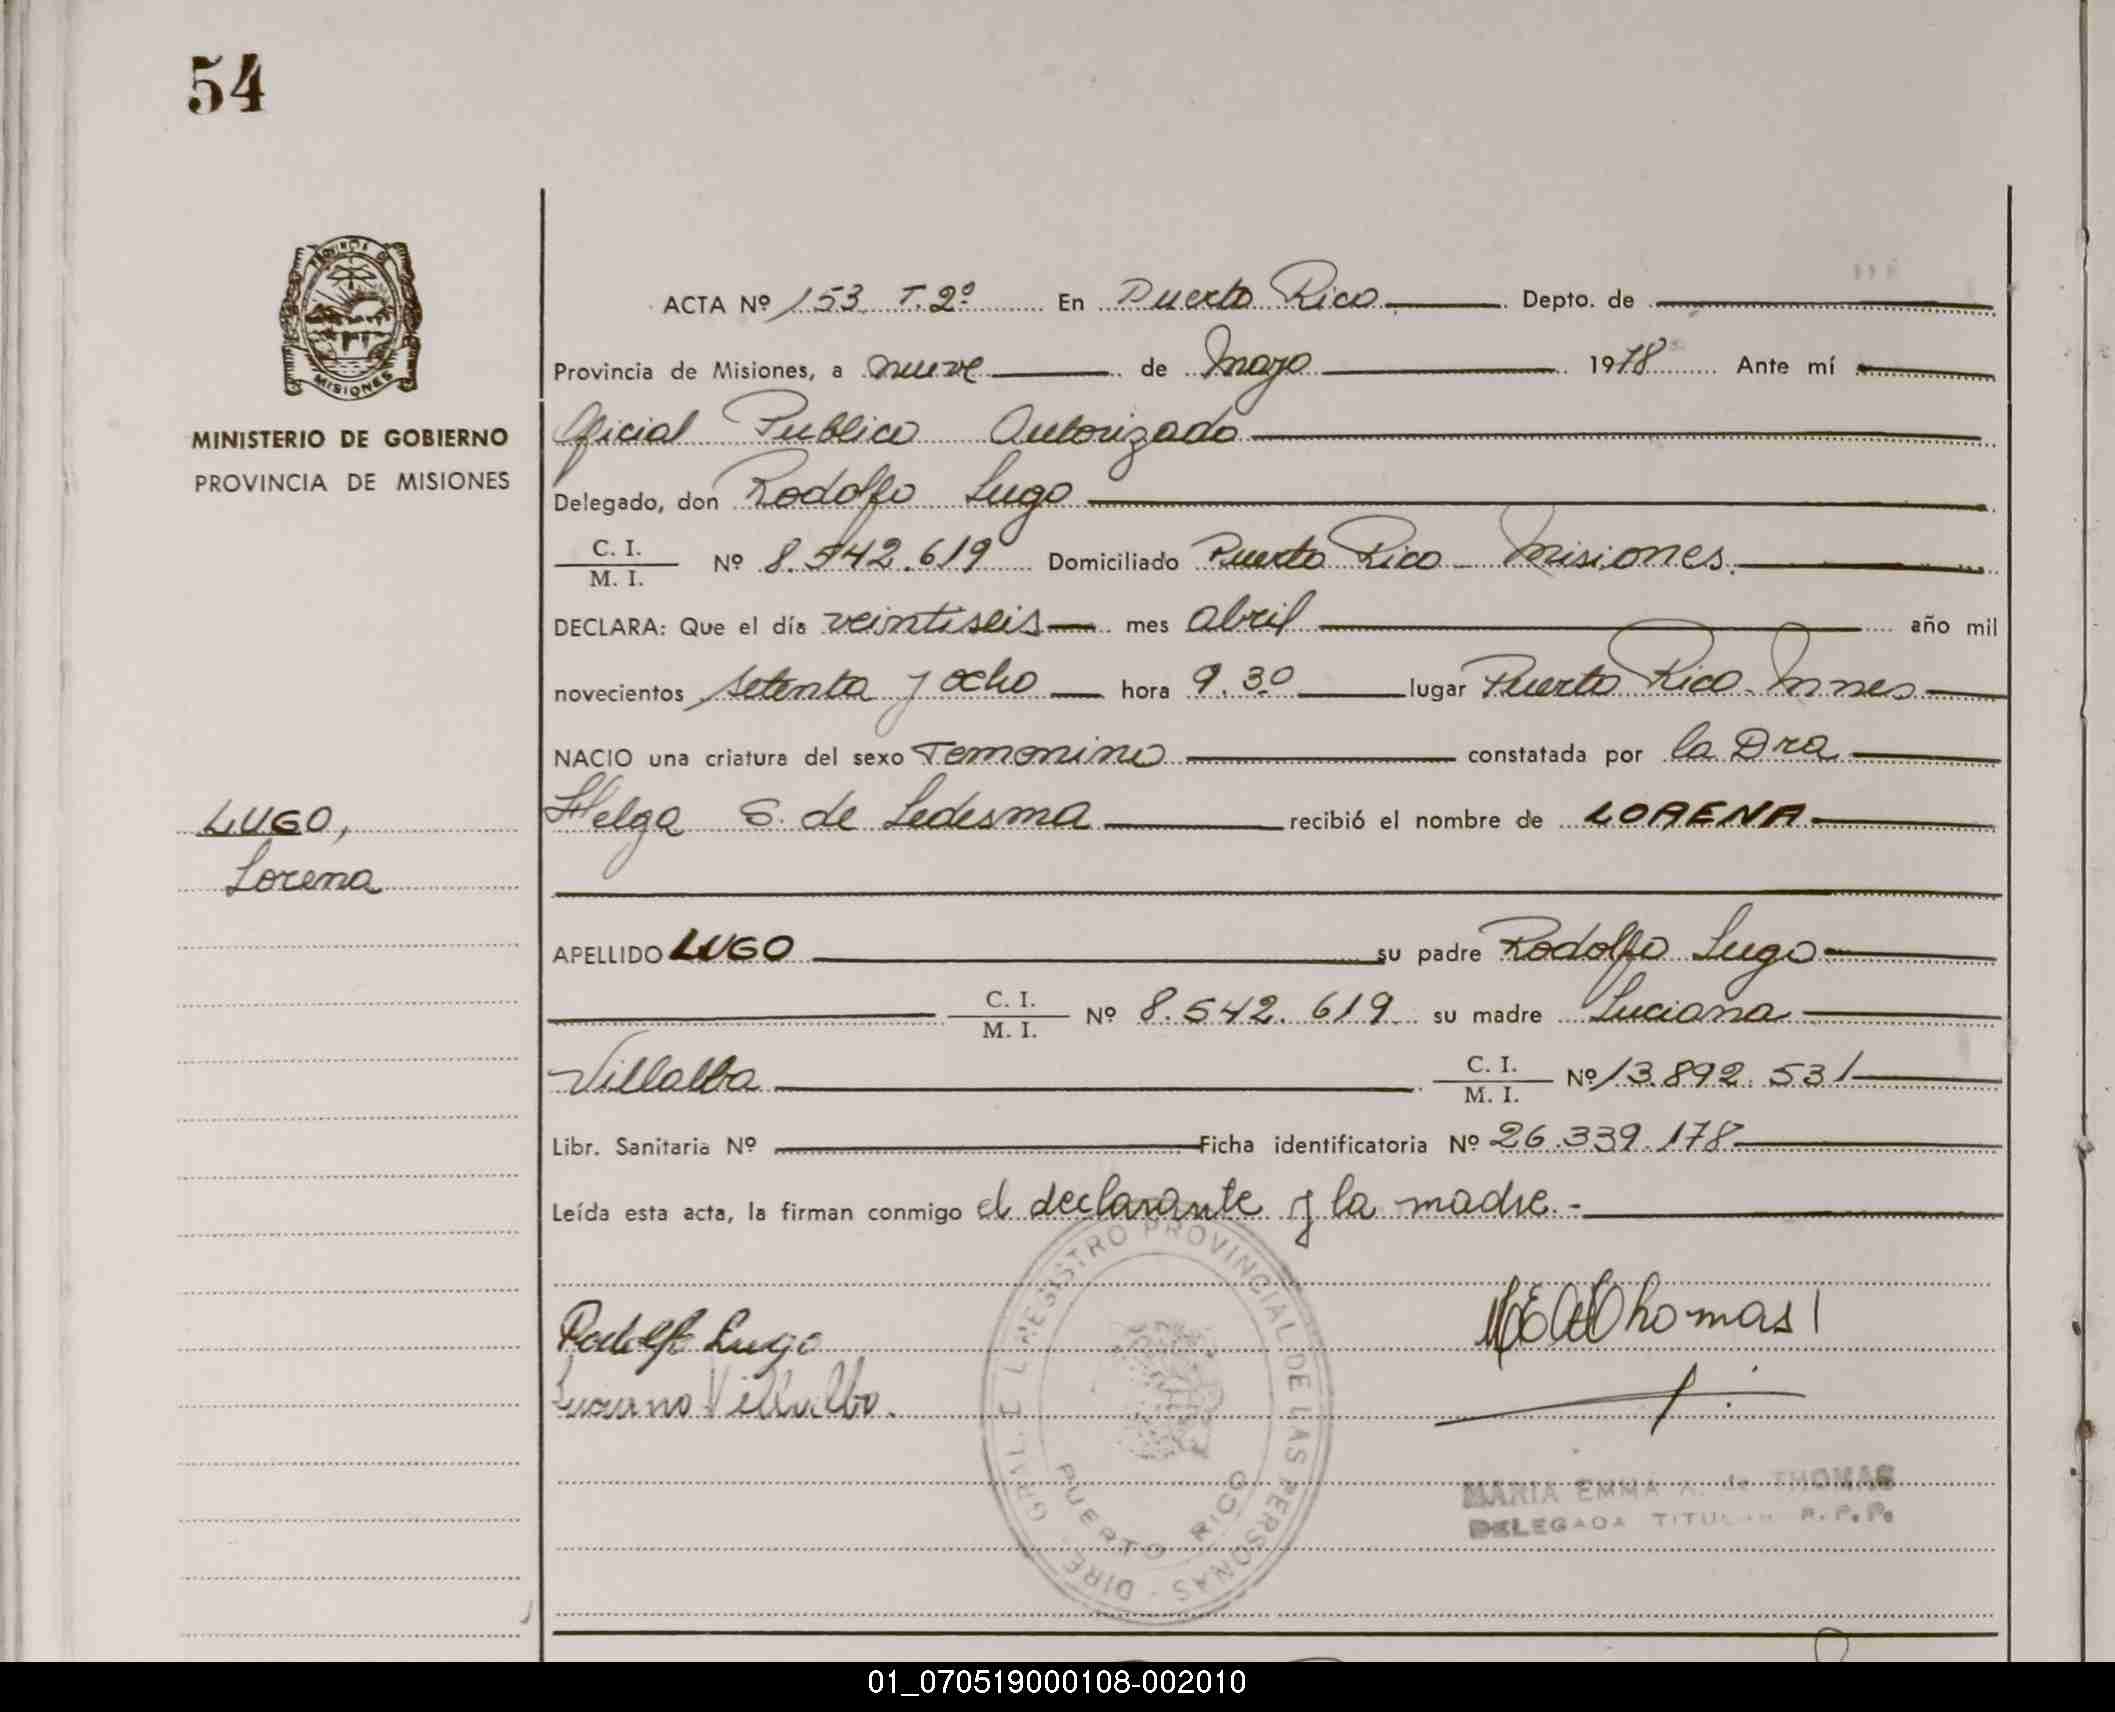 54
PROVINCIA DE
MISIONES
MINISTERIO DE GOBIERNO
PROVINCIA DE MISIONES
LUGO,
Lorena
ACTA Nº 153 T.2º En Puerto Rico Depto. de
Provincia de Misiones, a nueve de Mayo 1978 Ante mí
Oficial Publico Autorizado
Delegado, don Rodolfo Lugo
C. I.
M. I. Nº 8.542.619 Domiciliado Puerto Rico - Misiones.
DECLARA: Que el día veintiseis mes abril año mil
novecientos setenta y ocho hora 9.30 lugar Puerto Rico. Mnes
NACIO una criatura del sexo Femenino constatada por la Dra
Helga S. de Ledesma recibió el nombre de LORENA
APELLIDO LUGO su padre Rodolfo Lugo
C. I.
M. I. Nº 8.542.619 su madre Luciana
Villalba C. I.
M. I. Nº 13.892.531
Libr. Sanitaria Nº Ficha identificatoria Nº 26.339.178
Leída esta acta, la firman conmigo el declarante y la madre.-
Rodolfo Lugo
Luciana Villalba.
MEAdThomas
REGISTRO PROVINCIAL DE LAS PERSONAS - DIRE. GRAL. E I.
PUERTO RICO
MARIA EMMA A. de THOMAS
DELEGADA TITULAR R. P. P.
01_070519000108-002010